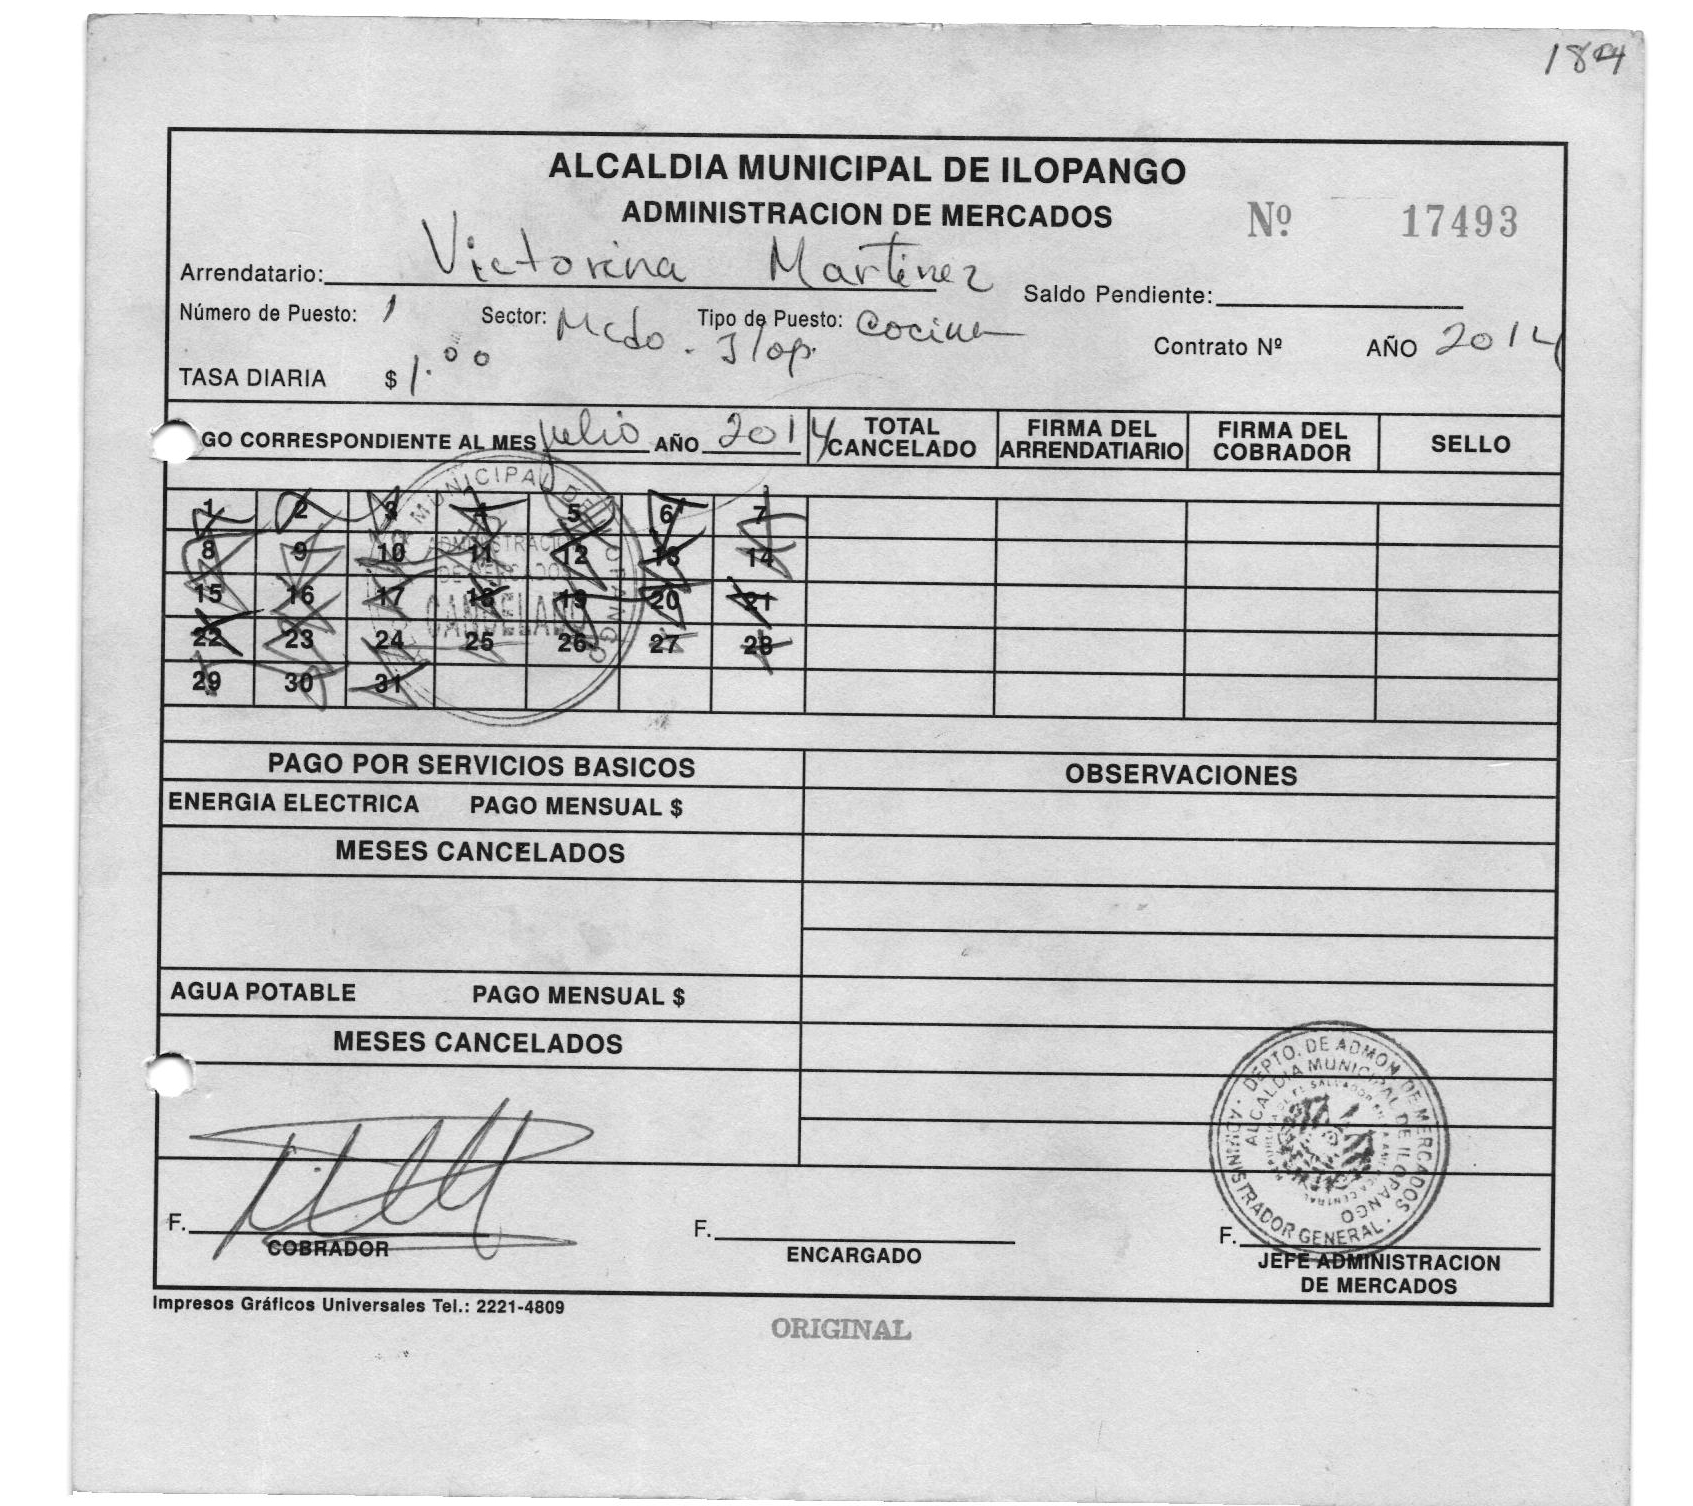 184
ALCALDIA MUNICIPAL DE ILOPANGO
ADMINISTRACION DE MERCADOS
Nº 17493
Arrendatario: Victorina Martinez
Saldo Pendiente:
Número de Puesto: 1 Sector: Mcdo. Ilop. Tipo de Puesto: Cocina
Contrato Nº AÑO 2014
TASA DIARIA $ 1.00
GO CORRESPONDIENTE AL MES Julio AÑO 2014
TOTAL CANCELADO
FIRMA DEL ARRENDATIARIO
FIRMA DEL COBRADOR
SELLO
1 2 3 4 5 6 7
8 9 10 11 12 13 14
15 16 17 18 19 20 21
22 23 24 25 26 27 28
29 30 31
MUNICIPAL DE ILOPANGO
ADMINISTRACION
DE MERCADOS
CANCELADO
PAGO POR SERVICIOS BASICOS
OBSERVACIONES
ENERGIA ELECTRICA PAGO MENSUAL $
MESES CANCELADOS
AGUA POTABLE PAGO MENSUAL $
MESES CANCELADOS
DEPTO. DE ADMON. DE MERCADOS
ALCALDIA MUNICIPAL DE ILOPANGO
ADMINISTRADOR GENERAL
F.
COBRADOR
F.
ENCARGADO
F.
JEFE ADMINISTRACION
DE MERCADOS
Impresos Gráficos Universales Tel.: 2221-4809
ORIGINAL